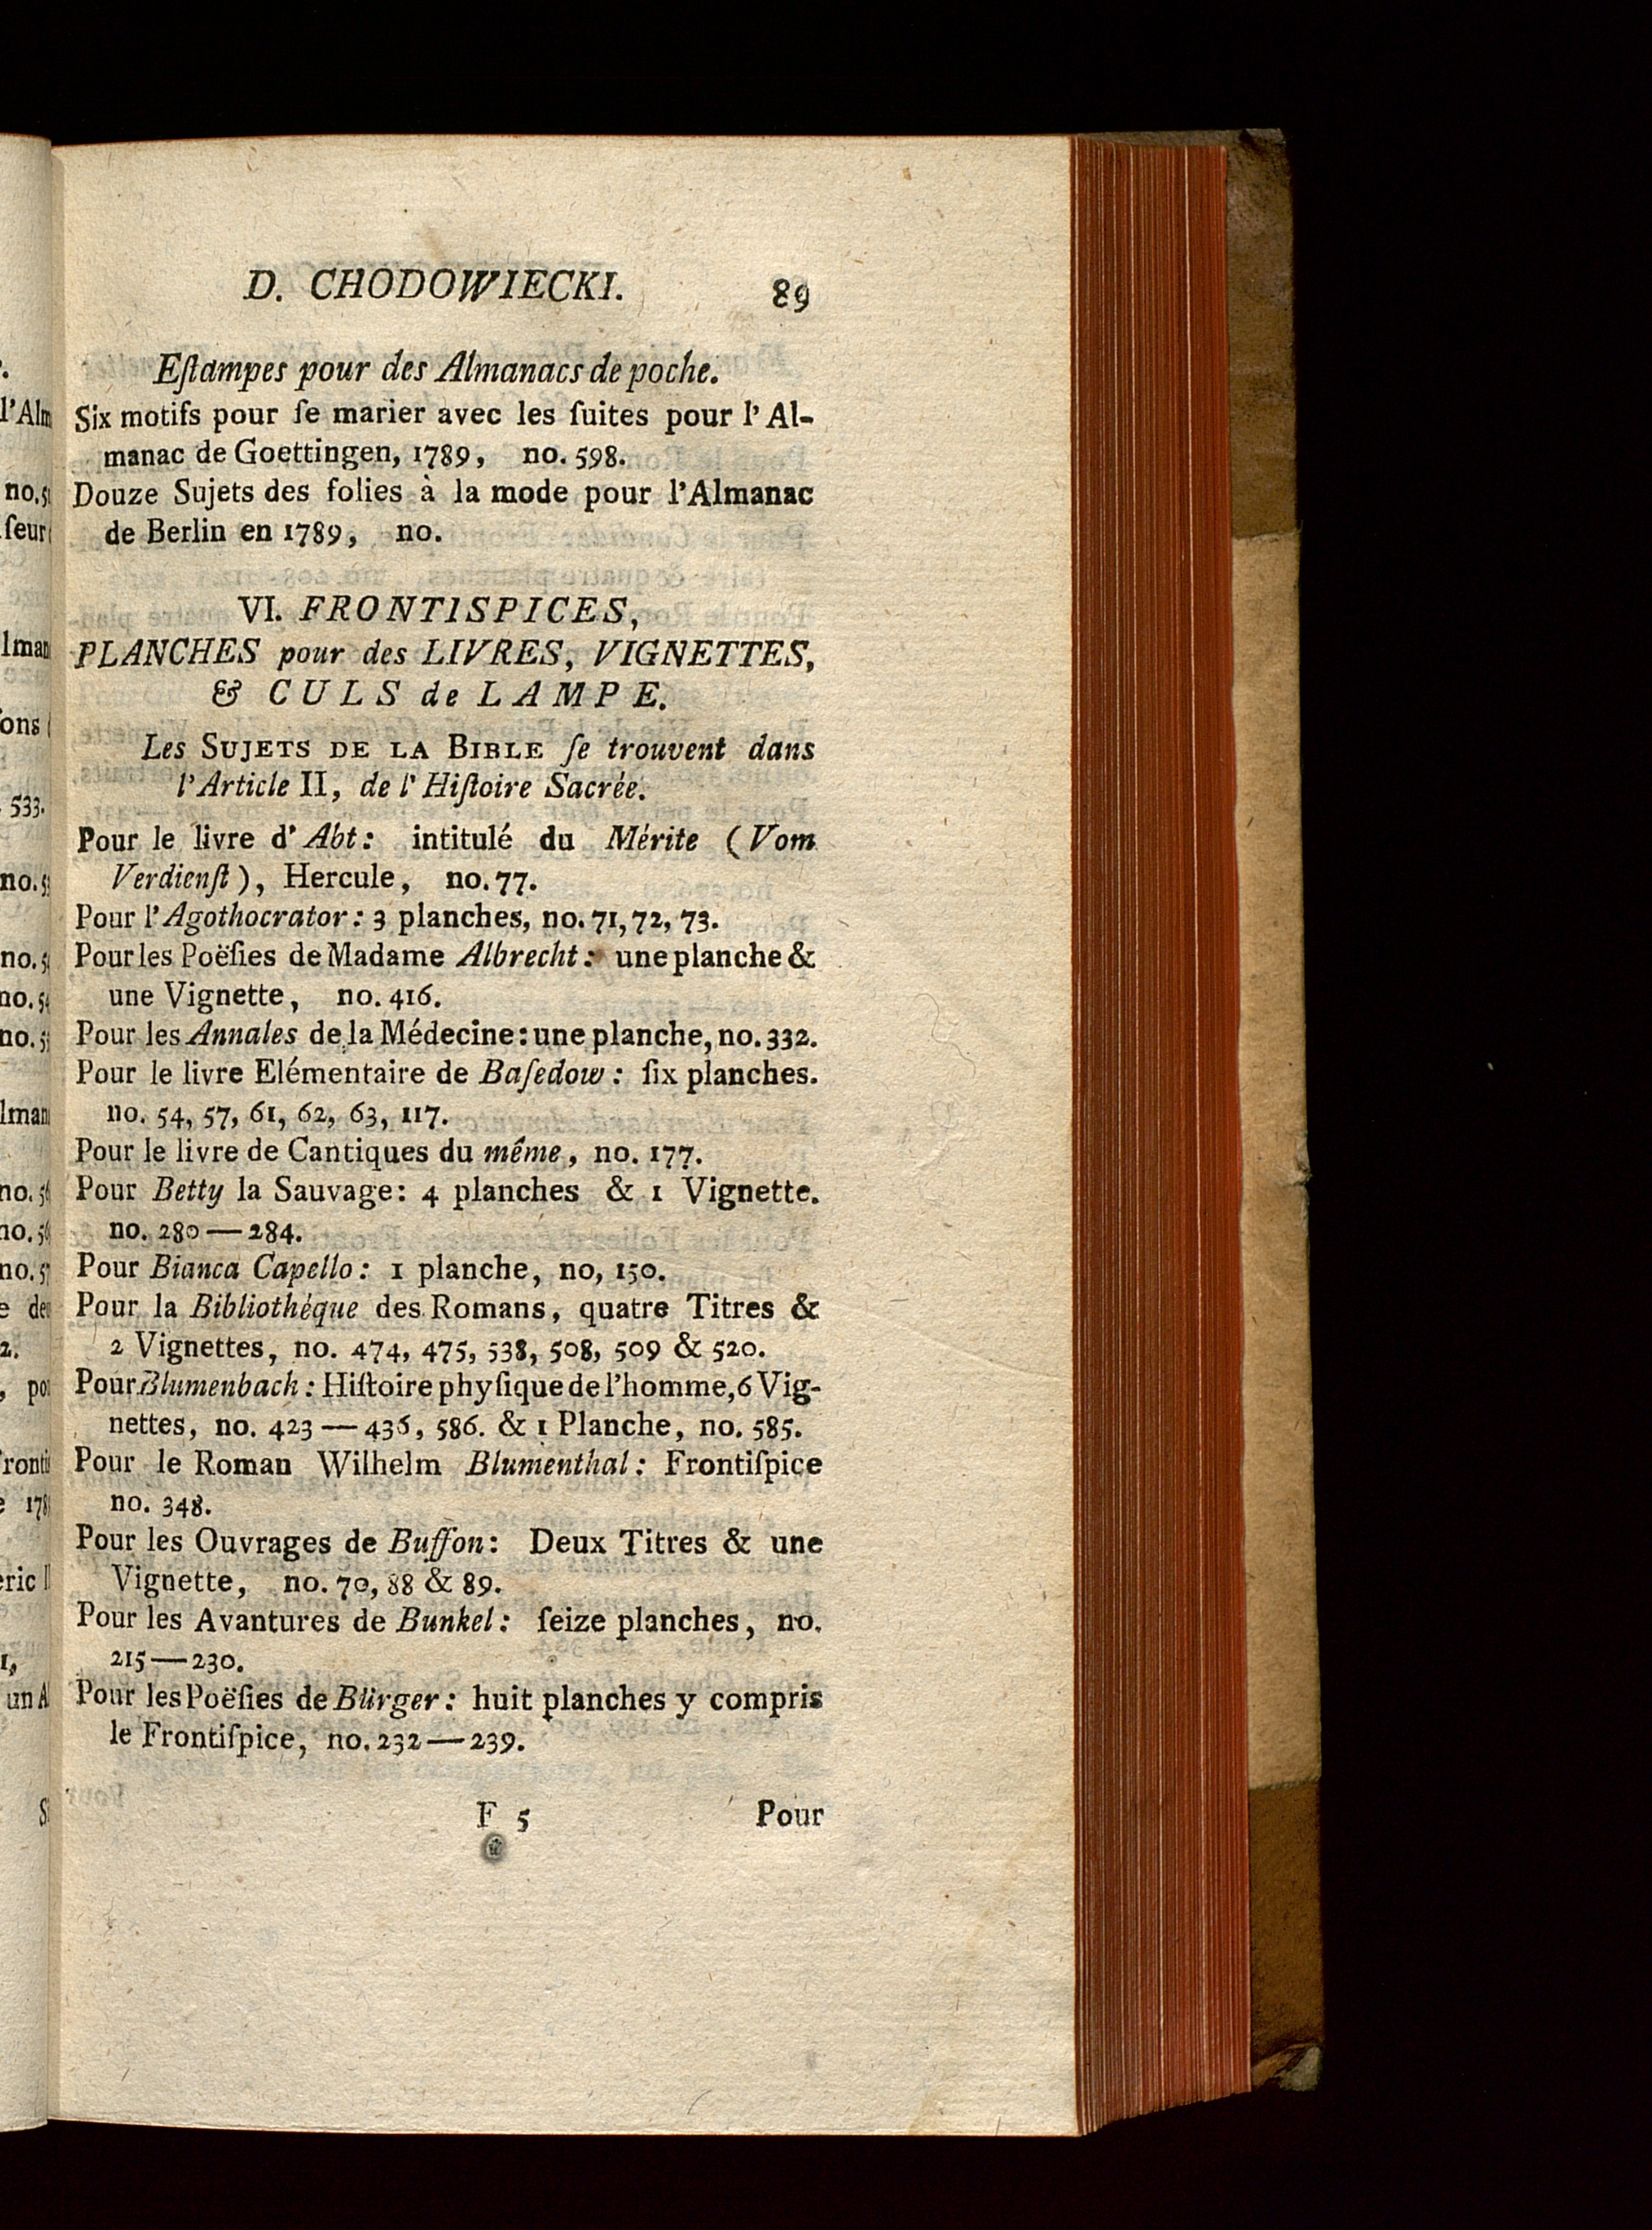 D. CHODOWIECKI. 89
Eſtampes pour des Almanacs de poche.
Six motifs pour ſe marier avec les ſuites pour l' Al-
manac de Goettingen, 1789, no. 598.
Douze Sujets des folies à la mode pour l'Almanac
de Berlin en 1789, no.
VI. FRONTISPICES,
PLANCHES pour des LIVRES, VIGNETTES,
& CULS de LAMPE.
Les SUJETS DE LA BIBLE ſe trouvent dans
l'Article II, de l'Hiſtoire Sacrée.
Pour le livre d' Abt: intitulé du Mérite (Vom
Verdienſt), Hercule, no. 77.
Pour l'Agothocrator: 3 planches, no. 71, 72, 73.
Pour les Poëſies de Madame Albrecht: une planche &
une Vignette, no. 416.
Pour les Annales de la Médecine: une planche, no. 332.
Pour le livre Elémentaire de Baſedow: ſix planches.
no. 54, 57, 61, 62, 63, 117.
Pour le livre de Cantiques du même, no. 177.
Pour Betty la Sauvage: 4 planches & 1 Vignette.
no. 280—284.
Pour Bianca Capello: 1 planche, no, 150.
Pour la Bibliothéque des Romans, quatre Titres &
2 Vignettes, no. 474, 475, 538, 508, 509 & 520.
Pour Blumenbach: Hiſtoire phyſique de l'homme, 6 Vig-
nettes, no. 423—436, 586. & 1 Planche, no. 585.
Pour le Roman Wilhelm Blumenthal: Frontiſpice
no. 348.
Pour les Ouvrages de Buffon: Deux Titres & une
Vignette, no. 70, 88 & 89.
Pour les Avantures de Bunkel: ſeize planches, no.
215—230.
Pour les Poëſies de Bürger: huit planches y compris
le Frontiſpice, no. 232—239.
F 5 Pour